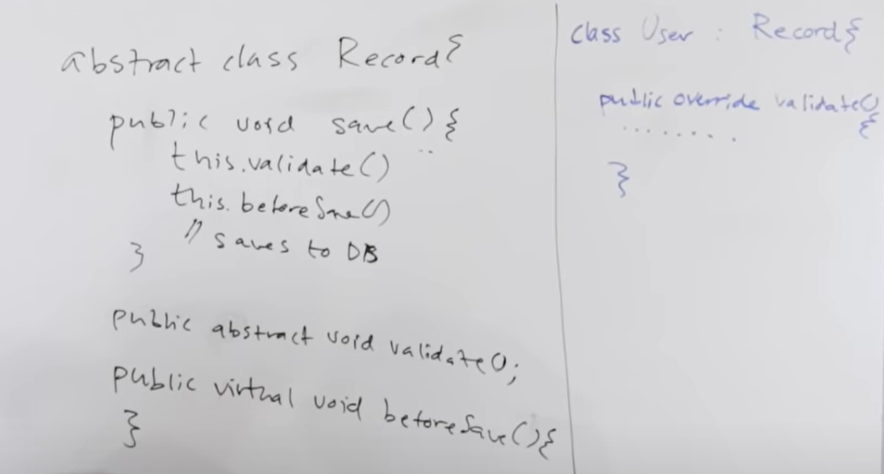 abstract class Record{
public void save(){
this.validate()
this.beforeSave()
// saves to DB
}
public abstract void validate();
public virtual void beforeSave(){
}
class User : Record{
public override validate()
{
........
}